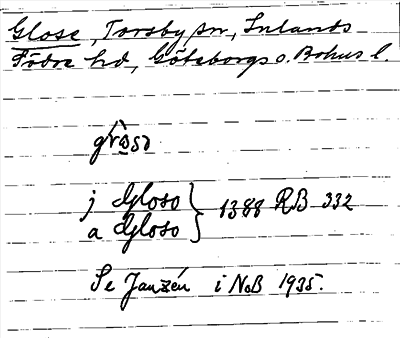 Glose, Torsby sn, Inlands
Södre hd, Göteborgs o. Bohus l.
j Gloso } 1388 RB 332
a Gloso
Se Janzén i NoB 1935.